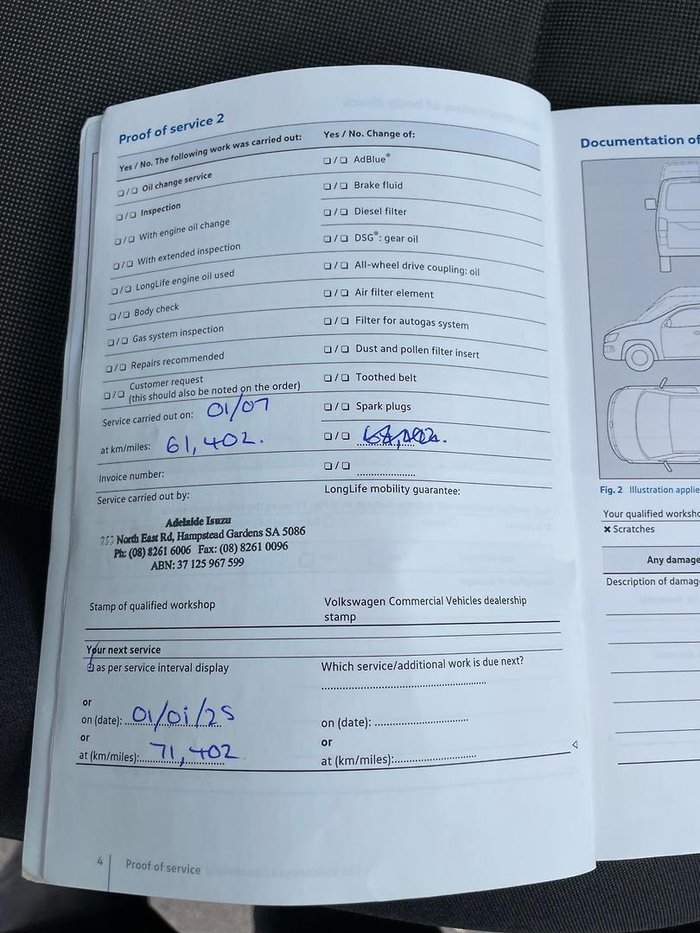 Proof of service 2
Yes / No. The following work was carried out:
❑/❑ Oil change service
❑/❑ Inspection
❑/❑ With engine oil change
❑/❑ With extended inspection
❑/❑ LongLife engine oil used
❑/❑ Body check
❑/❑ Gas system inspection
❑/❑ Repairs recommended
❑/❑ Customer request
(this should also be noted on the order)
Service carried out on: 01/07
at km/miles: 61,402.
Invoice number:
Service carried out by:
Adelaide Isuzu
North East Rd, Hampstead Gardens SA 5086
Ph: (08) 8261 6006 Fax: (08) 8261 0096
ABN: 37 125 967 599
Stamp of qualified workshop
Yes / No. Change of:
❑/❑ AdBlue®
❑/❑ Brake fluid
❑/❑ Diesel filter
❑/❑ DSG®: gear oil
❑/❑ All-wheel drive coupling: oil
❑/❑ Air filter element
❑/❑ Filter for autogas system
❑/❑ Dust and pollen filter insert
❑/❑ Toothed belt
❑/❑ Spark plugs
❑/❑
❑/❑
LongLife mobility guarantee:
Volkswagen Commercial Vehicles dealership
stamp
Your next service
❑ as per service interval display
or
on (date): 01/01/25
or
at (km/miles): 71,402
Which service/additional work is due next?
on (date):
or
at (km/miles):
4 Proof of service
Documentation of
Fig. 2 Illustration applie
Your qualified worksho
✖ Scratches
Any damage
Description of damag